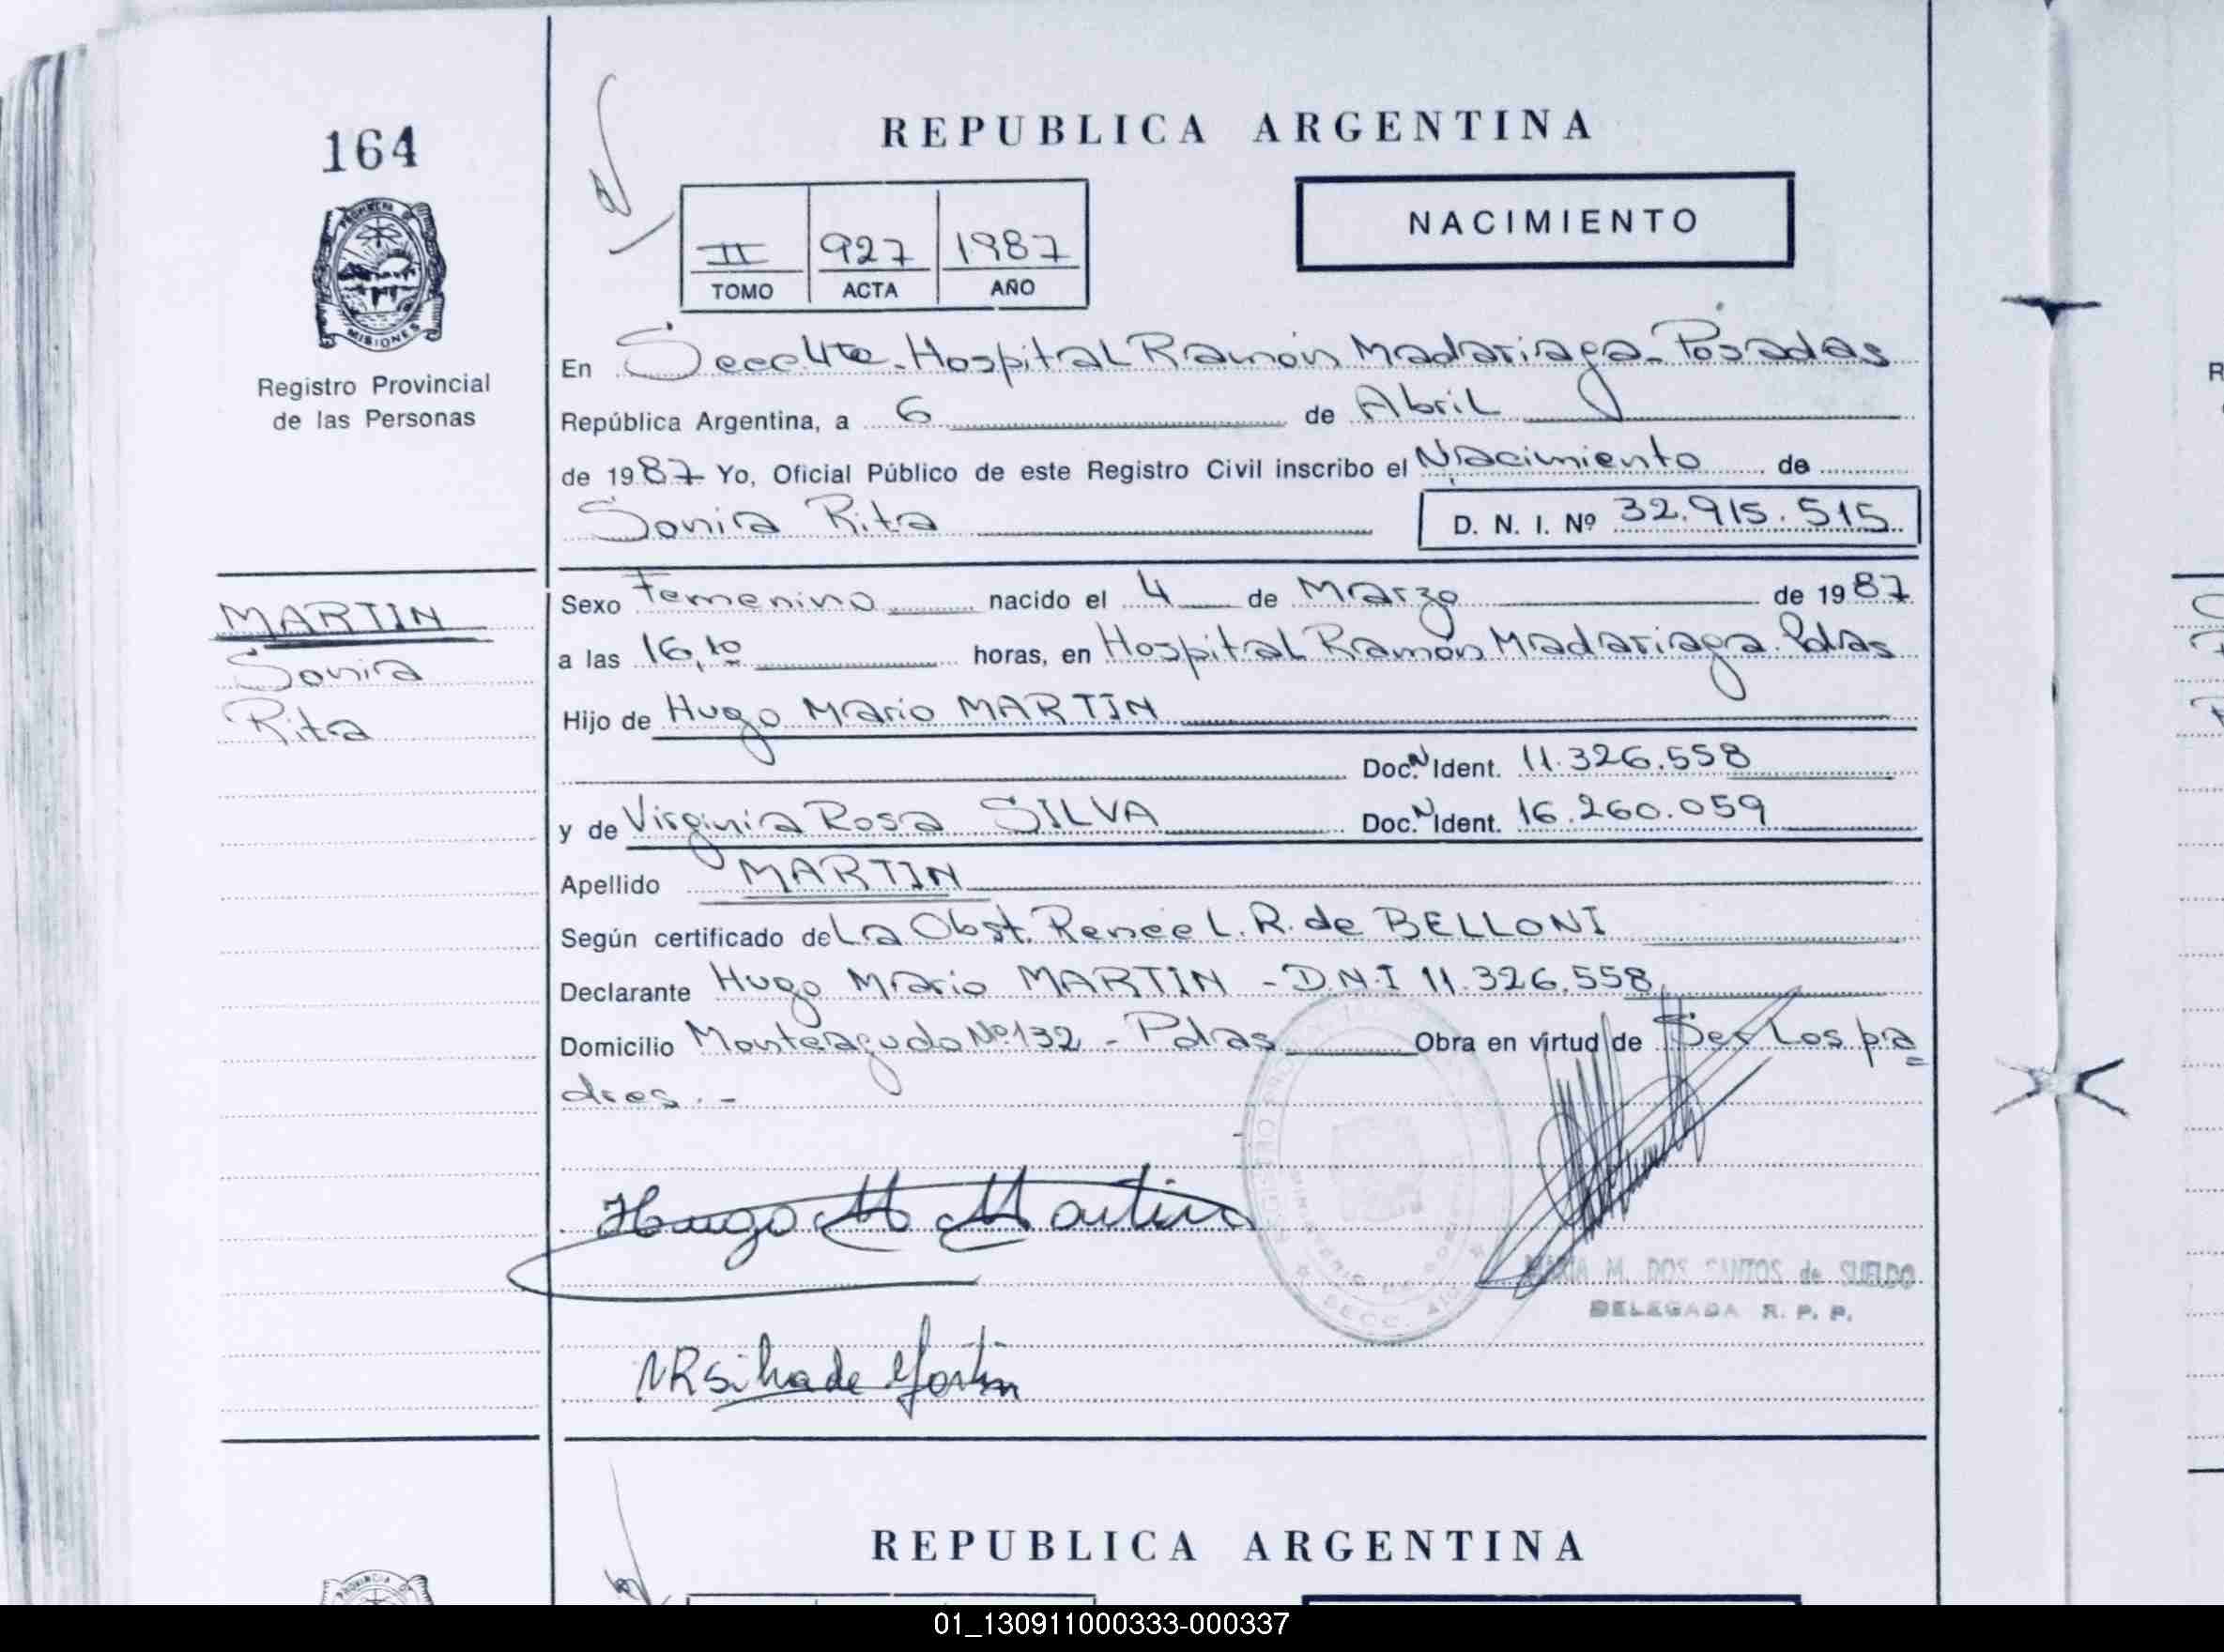 164
PROVINCIA DE
MISIONES
Registro Provincial
de las Personas
MARTIN
Sonia
Rita
REPUBLICA ARGENTINA
NACIMIENTO
II 927 1987
TOMO ACTA AÑO
En Secc. 4ta. Hospital Ramón Madariaga - Posadas
República Argentina, a 6 de Abril
de 1987 Yo, Oficial Público de este Registro Civil inscribo el Nacimiento de
Sonia Rita D. N. I. Nº 32.915.515
Sexo Femenino nacido el 4 de Marzo de 1987
a las 16,10 horas, en Hospital Ramón Madariaga. Pdas
Hijo de Hugo Mario MARTIN
Doc. N Ident. 11.326.558
y de Virginia Rosa SILVA Doc. N Ident. 16.260.059
Apellido MARTIN
Según certificado de La Obst. Renee L. R. de BELLONI
Declarante Hugo Mario MARTIN - D.N.I 11.326.558
Domicilio Monteagudo Nº 132 - Pdas Obra en virtud de Ser Los pa=
dres. -
Hugo M Martin
VR Silva de Martin
MARIA M. DOS SANTOS de SUELDO
DELEGADA R. P. P.
REPUBLICA ARGENTINA
PROVINCIA DE
01_130911000333-000337